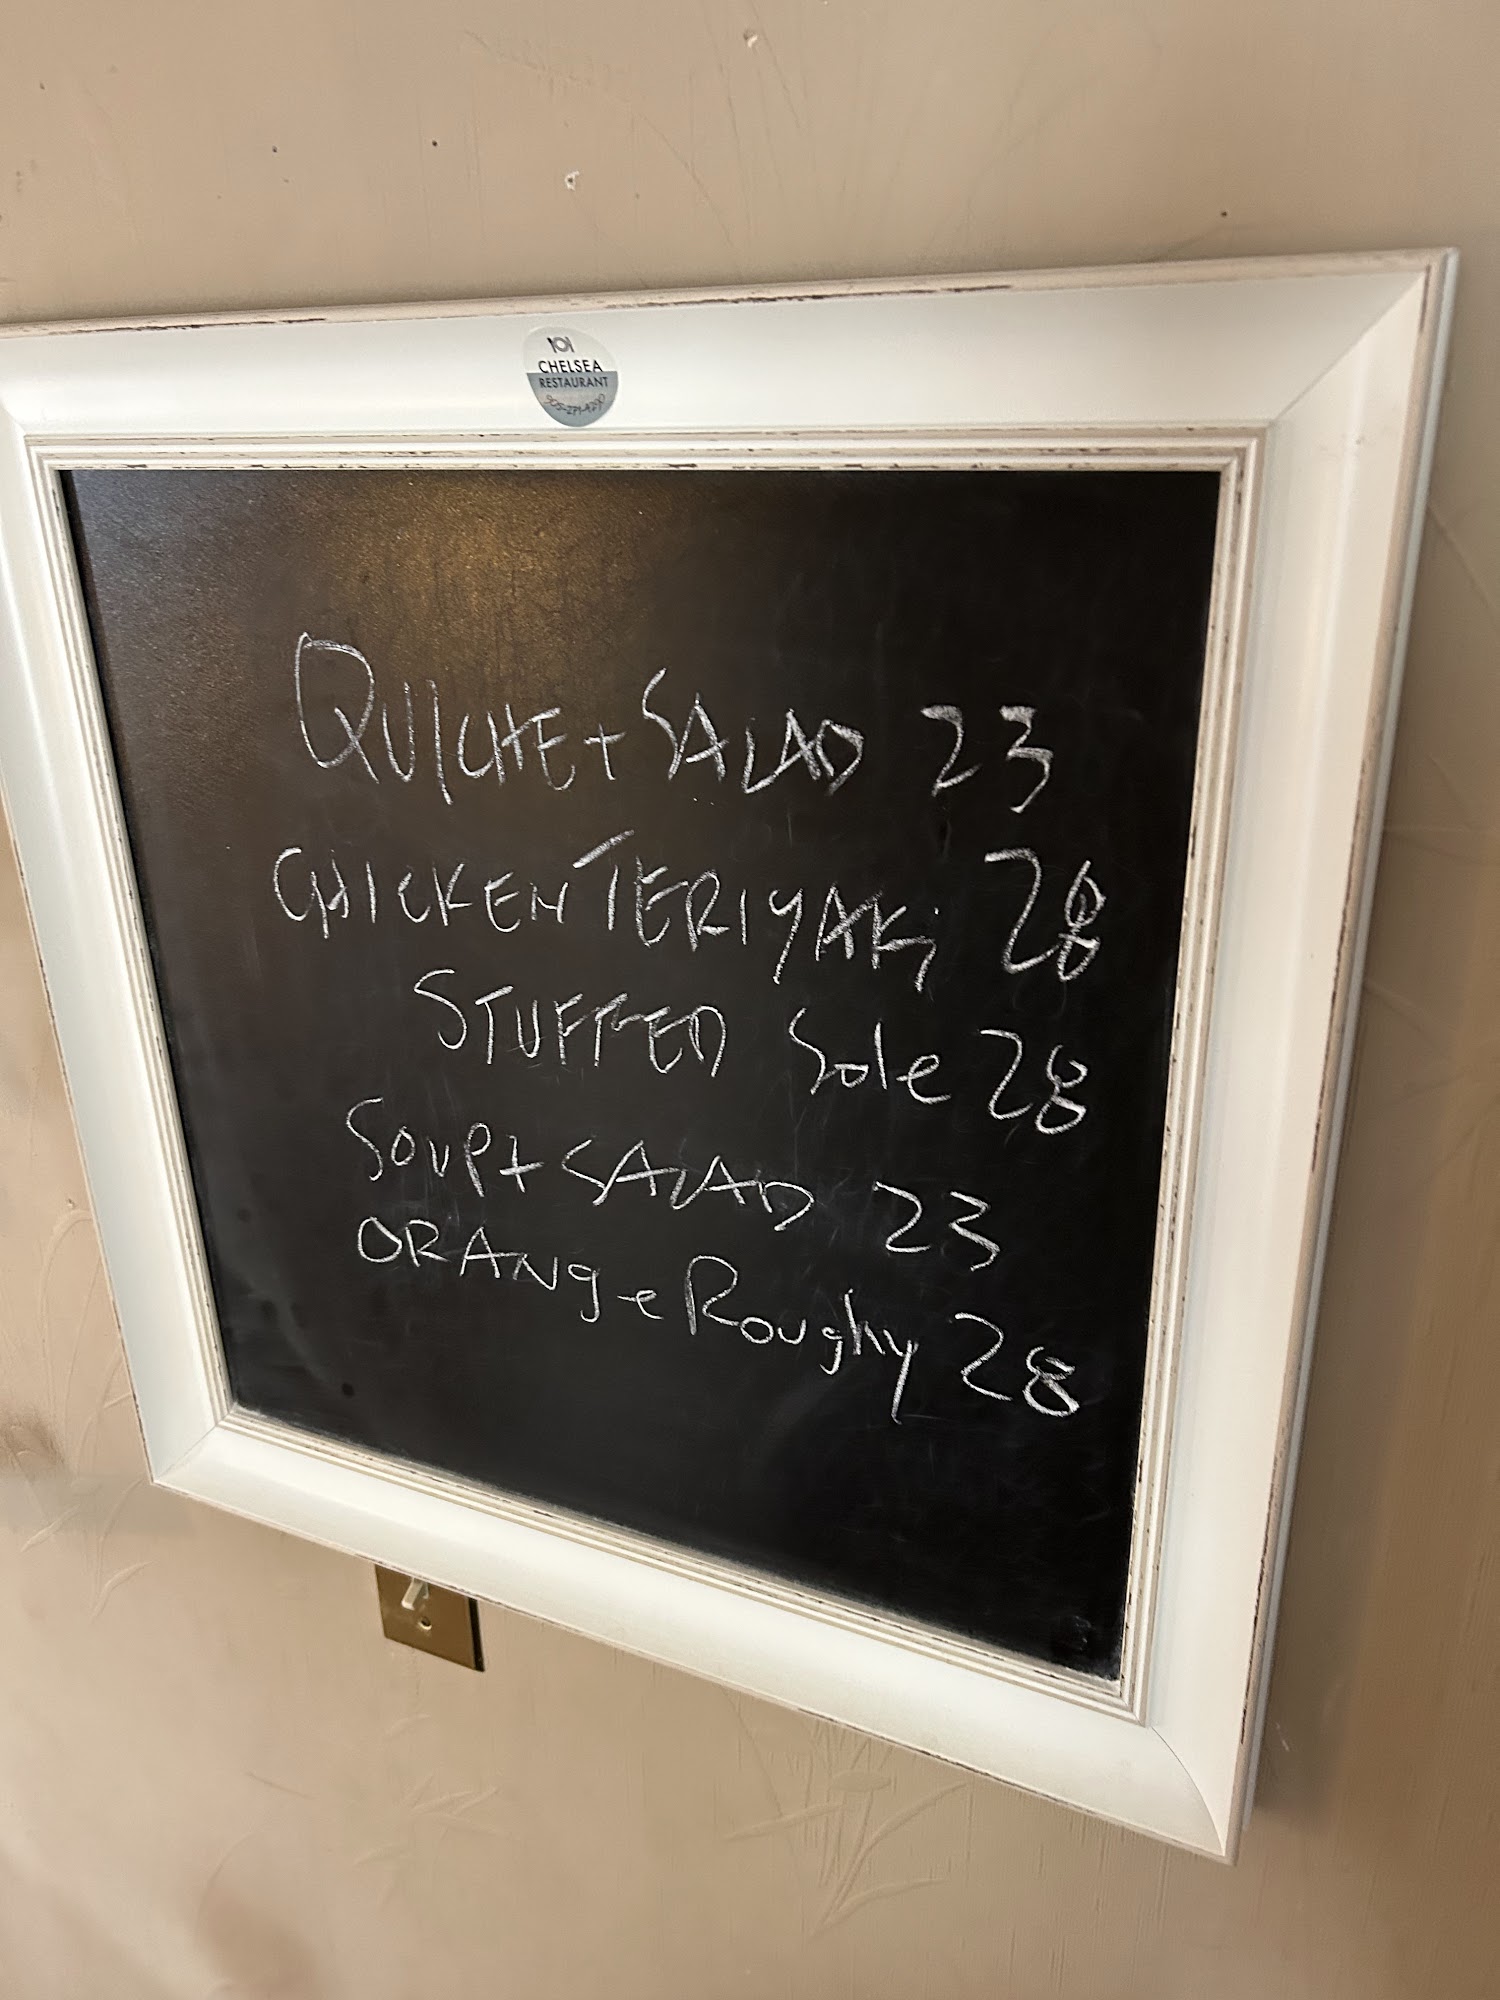 CHELSEA
RESTAURANT
QUICHE + SALAD 23
CHICKEN TERIYAKi 28
STUFFED Sole 28
Soup + SALAD 23
ORANge Roughy 28